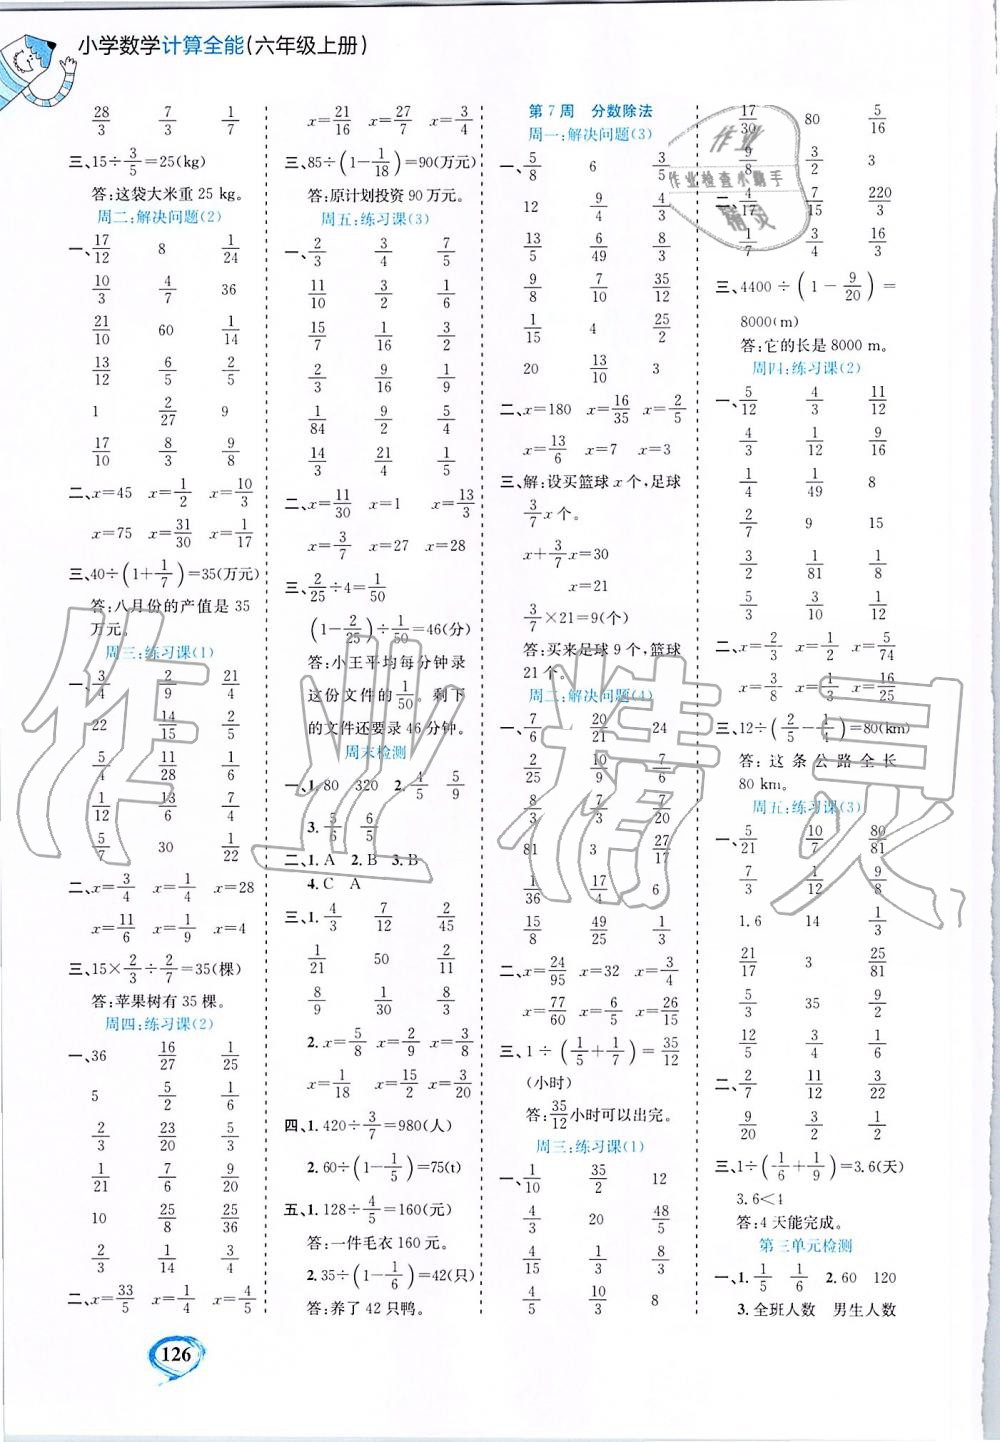 小学数学计算全能(六年级上册)
28/3 7/3 1/7
三、15÷3/5=25(kg)
答:这袋大米重25 kg。
周二:解决问题(2)
一、17/12 8 1/24
10/3 4/7 36
21/10 60 1/14
13/12 6/5 2/5
1 2/27 9
17/10 8/3 9/8
二、x=45 x=1/2 x=10/3
x=75 x=31/30 x=1/17
三、40÷(1+1/7)=35(万元)
答:八月份的产值是35
万元。
周三:练习课(1)
一、3/4 2/9 21/4
22 14/15 2/5
5/4 11/28 1/6
1/12 13/6 7/4
5/7 30 1/22
二、x=3/4 x=1/4 x=28
x=11/6 x=1/9 x=4
三、15×2/3÷2/7=35(棵)
答:苹果树有35棵。
周四:练习课(2)
一、36 16/27 1/25
5 5/2 1/6
2/3 23/20 5/3
1/21 7/6 9/20
10 25/8 25/36
2/3 1/4 3/4
二、x=33/5 x=1/4 x=4/5
x=21/16 x=27/7 x=3/4
三、85÷(1-1/18)=90(万元)
答:原计划投资90万元。
周五:练习课(3)
一、2/3 3/4 7/5
11/10 3/2 1/6
15/7 1/16 3/2
2/3 9/16 1/9
1/84 9/2 5/4
14/3 21/4 1/5
二、x=11/30 x=1 x=13/3
x=3/7 x=27 x=28
三、2/25÷4=1/50
(1-2/25)÷1/50=46(分)
答:小王平均每分钟录
这份文件的1/50。剩下
的文件还要录46分钟。
周末检测
一、1.80 320 2.4/5 5/9
3.5/6 6/5
二、1.A 2.B 3.B
4.C A
三、1.4/3 7/12 2/45
1/21 50 2/11
8/9 1/30 8/3
2.x=5/8 x=2/9 x=3/8
x=1/18 x=15/2 x=3/20
四、1.420÷3/7=980(人)
2.60÷(1-1/5)=75(t)
五、1.128÷4/5=160(元)
答:一件毛衣160元。
2.35÷(1-1/6)=42(只)
答:养了42只鸭。
第7周 分数除法
周一:解决问题(3)
一、5/8 6 3/5
12 9/4 4/3
13/5 6/49 8/3
9/8 7/10 35/12
1/15 4 25/2
20 13/10 3
二、x=180 x=16/35 x=2/5
x=13/6 x=7 x=3
三、解:设买篮球x个,足球
3/7x个。
x+3/7x=30
x=21
3/7×21=9(个)
答:买来足球9个,篮球
21个。
周二:解决问题(4)
一、7/6 20/21 24
2/25 10/9 7/6
8/3 7/2 7/20
81 3 27/17
1/36 17/4 6
15/8 49/25 1/3
二、x=24/95 x=32 x=3/4
x=77/60 x=6/5 x=26/15
三、1÷(1/5+1/7)=35/12
(小时)
答:35/12小时可以出完。
周三:练习课(1)
一、1/10 35/2 12
4/3 20 48/5
4/15 1/3 8/3
4/5 10/3 8
17/30 80 5/16
9/8 3/2 3
二、4/17 7/15 220/3
1/7 3/4 16/3
三、4400÷(1-9/20)=
8000(m)
答:它的长是8000 m。
周四:练习课(2)
一、5/12 4/3 11/12
4/3 1/12 9/16
1/4 1/49 8
2/7 9 15
3/2 1/81 1/8
5/3 3/10 1/12
二、x=2/3 x=1/2 x=5/74
x=3/8 x=1/3 x=16/25
三、12÷(2/5-1/4)=80(km)
答:这条公路全长
80 km。
周五:练习课(3)
一、5/21 10/7 80/81
7/3 1/12 9/8
1.6 14 1/3
21/17 3 25/81
5/3 35 9/2
12/5 3/4 1/6
二、2/7 11/12 3/22
9/20 2/3 2/3
三、1÷(1/6+1/9)=3.6(天)
3.6<4
答:4天能完成。
第三单元检测
一、1.1/5 1/6 2.60 120
3.全班人数 男生人数
126
作业
作业检查小助手
精灵
作业精灵